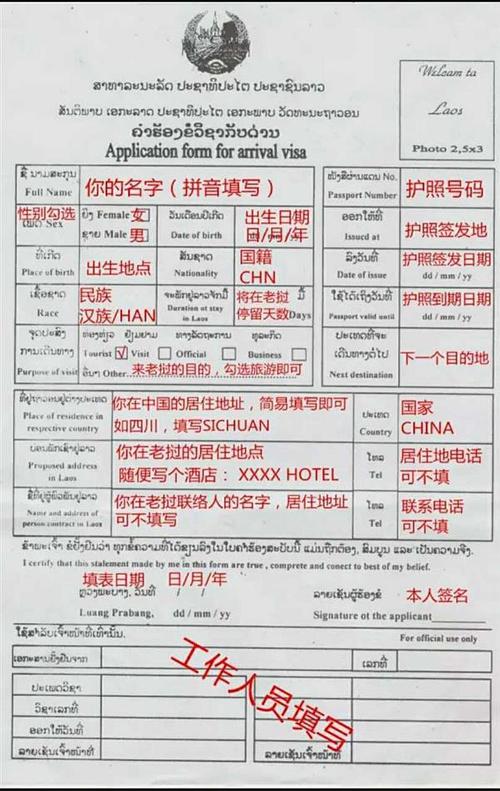 ສາທາລະນະລັດ ປະຊາທິປະໄຕ ປະຊາຊົນລາວ
ສັນຕິພາບ ເອກະລາດ ປະຊາທິປະໄຕ ເອກະພາບ ວັດທະນະຖາວອນ
ຄຳຮ້ອງຂໍວີຊາກັບດ່ານ
Application form for arrival visa
Welcam ta
Laos
Photo 2,5x3
ຊື່ ນາມສະກຸນ
Full Name
你的名字（拼音填写）
ໜັງສືຜ່ານແດນ No.
Passport Number
护照号码
性别勾选
ເພດ Sex
ຍິງ Female 女
ຊາຍ Male 男
ວັນເດືອນປີເກີດ
Date of birth
出生日期
日/月/年
ອອກໃຫ້ທີ່
Issucd at
护照签发地
ທີ່ເກີດ
Place of birth
出生地点
ສັນຊາດ
Nationality
国籍
CHN
ລົງວັນທີ
Date of issue
护照签发日期
dd / mm / yy
ເຊື້ອຊາດ
Race
民族
汉族/HAN
ຈະພັກຢູ່ລາວຈັກມື້
Duration ot stay
in Laos
将在老挝
停留天数
ມື້
Days
ໃຊ້ໄດ້ເຖິງວັນທີ
Passport valid until
护照到期日期
dd / mm / yy
ຈຸດປະສົງ
ການເດີນທາງ
Purpose of visit
ທ່ອງທ່ຽວ ຢ້ຽມຢາມ ທາງລັດຖະການ ທຸລະກິດ
Tourist √ Visit Official Business
ອື່ນໆ Other 来老挝的目的，勾选旅游即可
ປະເທດທີ່ຈະ
ເດີນທາງຕໍ່ໄປ
Next destination
下一个目的地
ທີ່ຢູ່ຖາວອນຢູ່ຕ່າງປະເທດ
Place of residence in
respective country
你在中国的居住地址，简易填写即可
如四川，填写SICHUAN
ປະເທດ
Country
国家
CHINA
ບ່ອນພັກເຊົາຢູ່ລາວ
Proposed address
in Laos
你在老挝的居住地点
随便写个酒店： XXXX HOTEL
ໂທລ
Tel
居住地电话
可不填
ຊື່ທີ່ຢູ່ຜູ້ພົວພັນຢູ່ລາວ
Name and address of
person contract in Laos
你在老挝联络人的名字，居住地址
可不填写
ໂທລ
Tel
联系电话
可不填
ຂ້າພະເຈົ້າ ຂໍຢັ້ງຢືນວ່າ ທຸກຂໍ້ຄວາມທີ່ໄດ້ຂຽນລົງໃນໃບຄຳຮ້ອງສະບັບນີ້ ແມ່ນຖືກຕ້ອງ, ສົມບູນ ແລະ ເປັນຄວາມຈິງ.
I certify that this statement made by me in this form are true , complete and conect to best of my belief.
填表日期 日/月/年
ຫຼວງພະບາງ, ວັນທີ / /
Luang Prabang, dd / mm / yy
ລາຍເຊັນຜູ້ຮ້ອງຂໍ 本人签名
Signature ot the applicant
ໃຊ້ສຳລັບເຈົ້າໜ້າທີ່ເທົ່ານັ້ນ.
For official use only
ເອກະສານຢັ້ງຢືນຈາກ
ເລກທີ່
工作人员填写
ປະເພດວີຊາ
ວີຊາເລກທີ່
ອອກໃຫ້ວັນທີ່
ລາຍເຊັນເຈົ້າໜ້າທີ່
ລາຍເຊັນເຈົ້າໜ້າທີ່